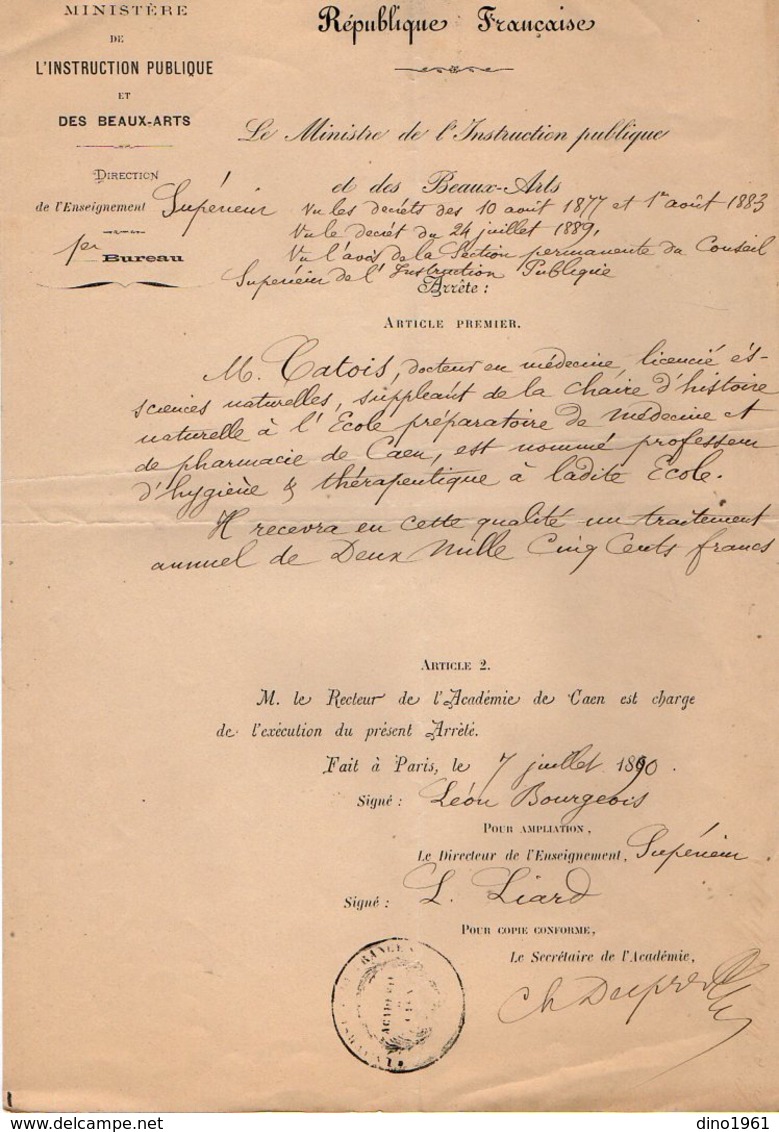 MINISTÈRE
DE
L'INSTRUCTION PUBLIQUE
ET
DES BEAUX-ARTS
DIRECTION
de l'Enseignement Supérieur
1er Bureau
République Française
Le Ministre de l'Instruction publique
et des Beaux-Arts
Vu les decréts des 10 août 1877 et 1er août 1883
Vu le decrét du 24 juillet 1889,
Vu l'avis de la Section permanente du Conseil
Supérieur de l'Instruction Publique
Arrête :
ARTICLE PREMIER.
M. Catois, docteur en médecine, licencié ès-
sciences naturelles, suppléant de la chaire d'histoire
naturelle à l'Ecole préparatoire de médecine et
de pharmacie de Caen, est nommé professeur
d'hygiène & thérapeutique à ladite Ecole.
Il recevra en cette qualité un traitement
annuel de Deux Mille Cinq Cents francs
ARTICLE 2.
M. le Recteur de l'Académie de Caen est charge
de l'exécution du présent Arrêté.
Fait à Paris, le 7 juillet 1890.
Signé : Léon Bourgeois
POUR AMPLIATION,
Le Directeur de l'Enseignement, Supérieur
Signé : L. Liard
POUR COPIE CONFORME,
Le Secrétaire de l'Académie,
Ch
delcampe.net
dino1961